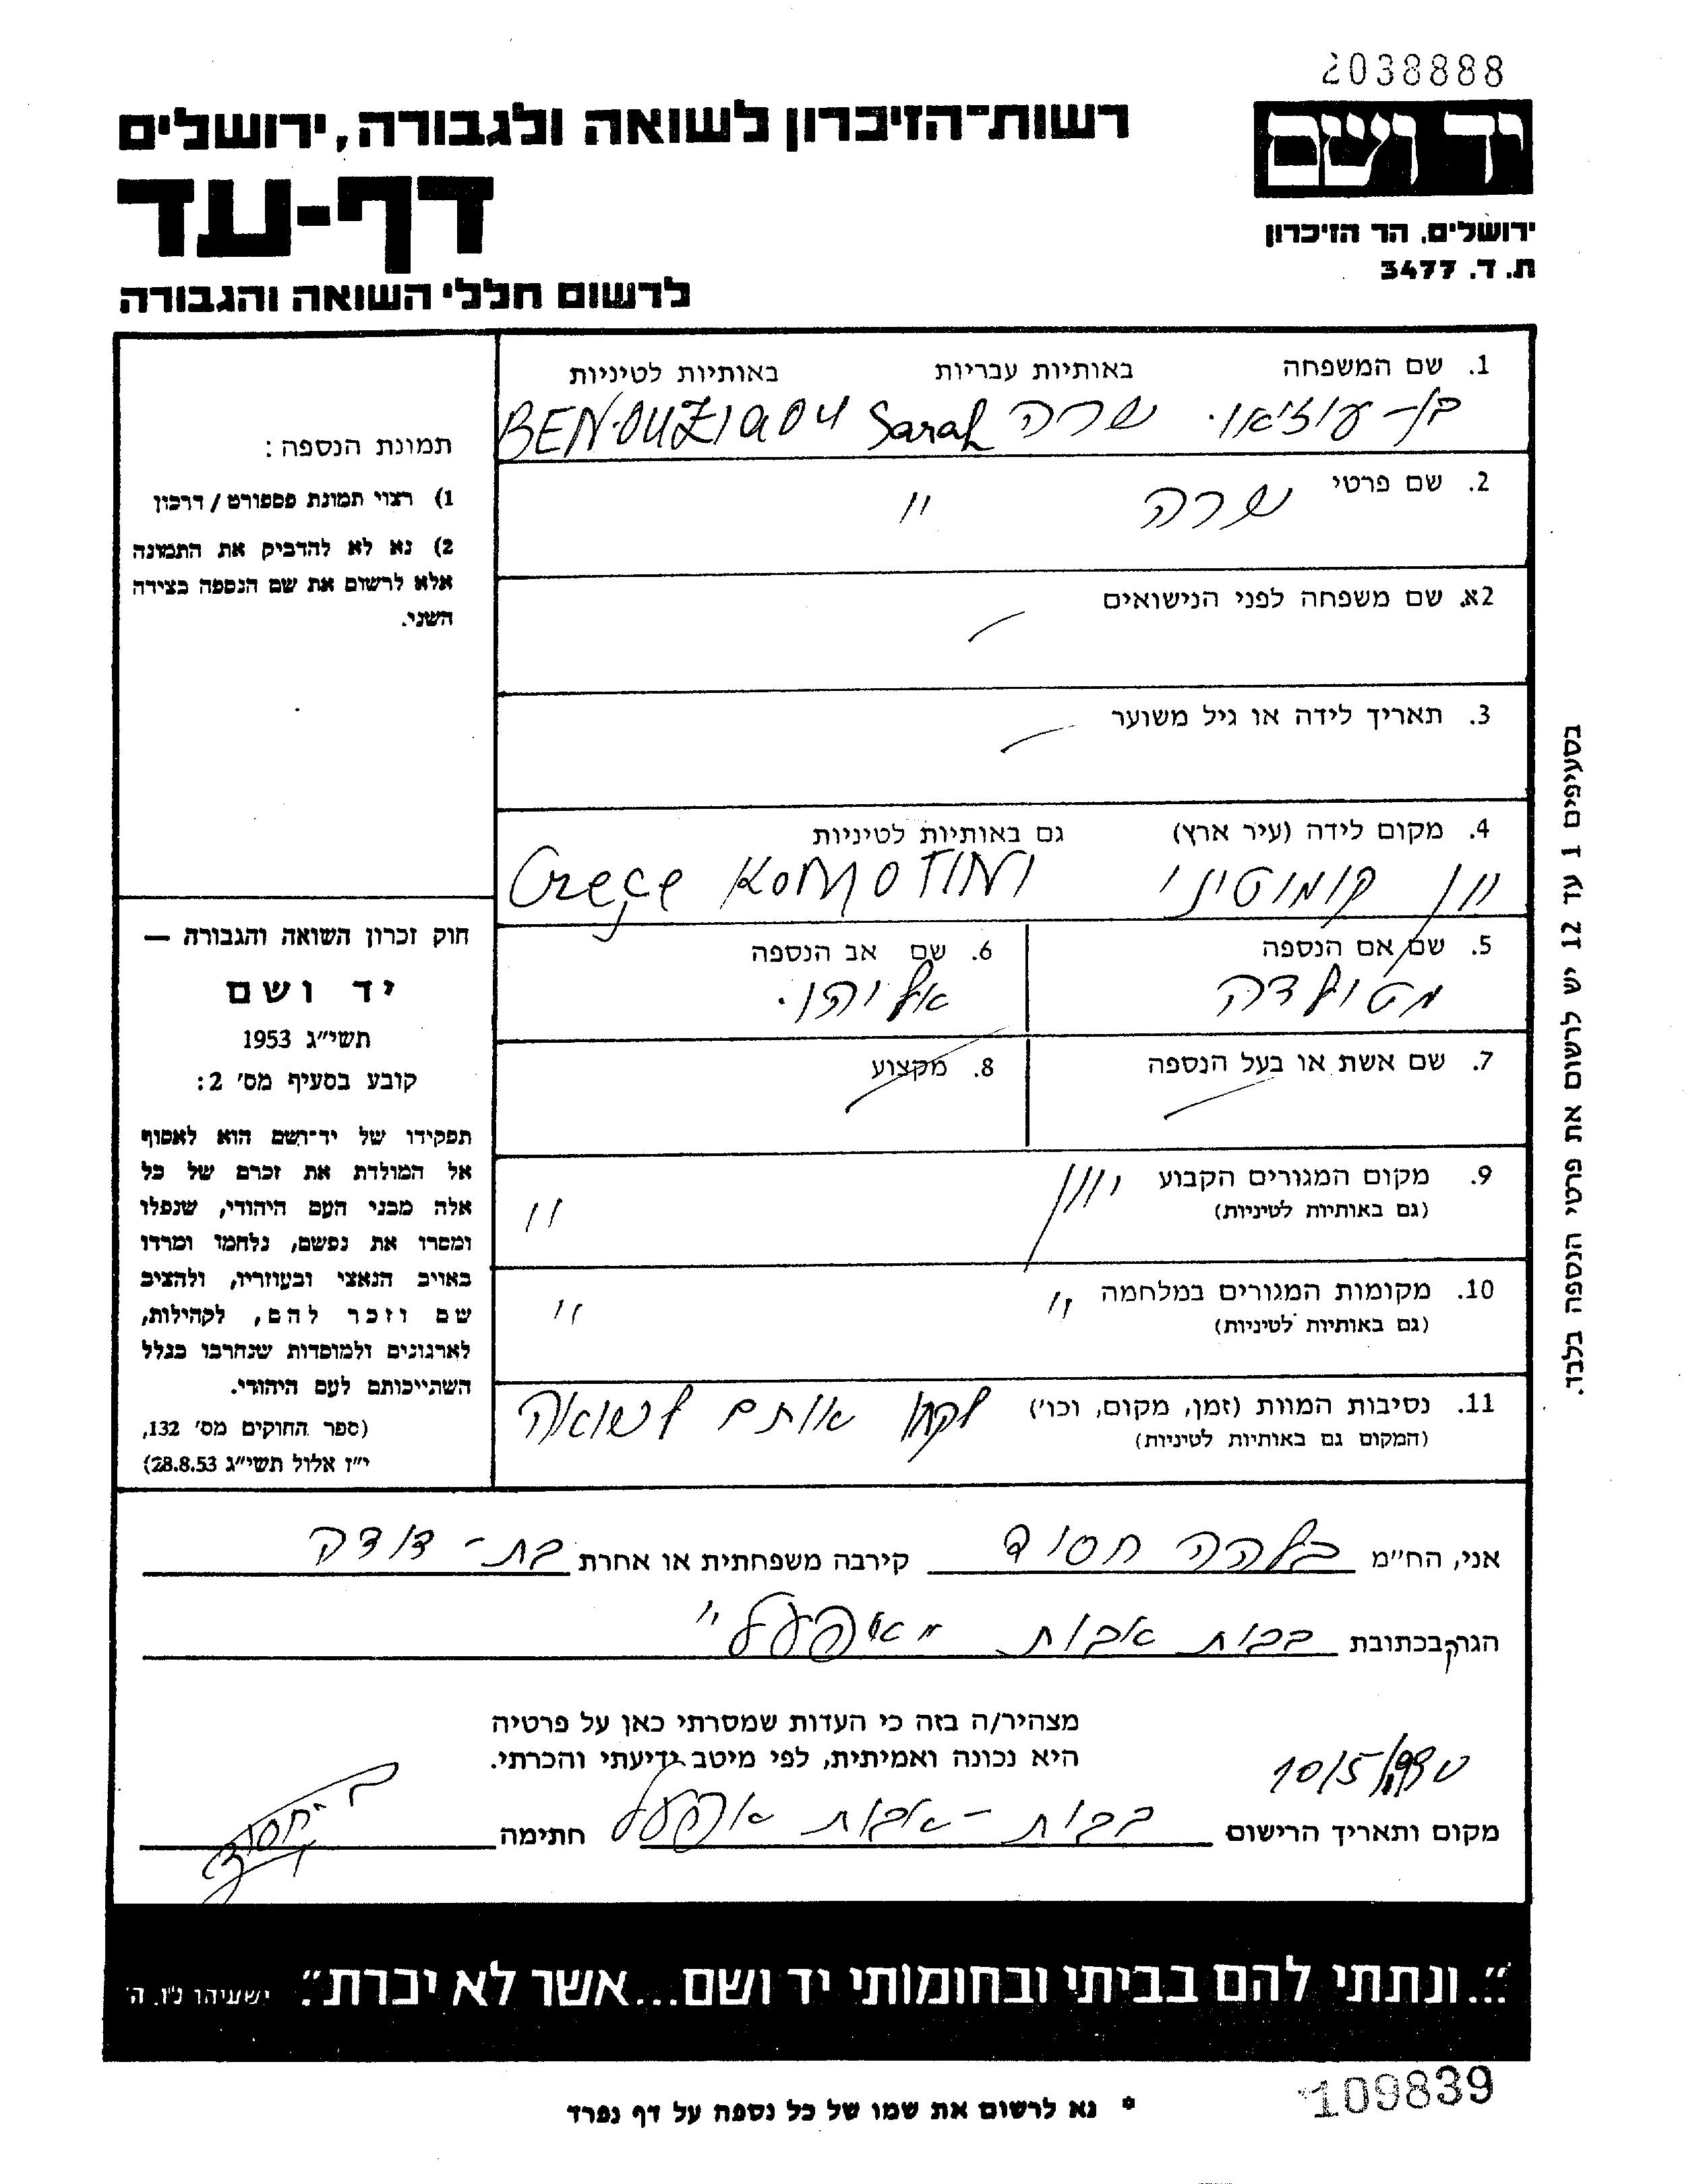 2038888
רשות־הזיכרון לשואה ולגבורה, ירושלים
יד ושם
דף-עד
ירושלים, הר הזיכרון
ת. ד. 3477
לרשום חללי השואה והגבורה
1. שם המשפחה באותיות עבריות באותיות לטיניות
בן-עוזיאו. שרה Sarah BENOUZIAOU
2. שם פרטי שרה "
2א. שם משפחה לפני הנישואים
3. תאריך לידה או גיל משוער
4. מקום לידה (עיר ארץ) גם באותיות לטיניות
יוון קומוטיני KOMOTINI Greçe
5. שם אם הנספה 6. שם אב הנספה
מטילדה אליהו.
7. שם אשת או בעל הנספה 8. מקצוע
9. מקום המגורים הקבוע יוון "
(גם באותיות לטיניות)
10. מקומות המגורים במלחמה " "
(גם באותיות לטיניות)
11. נסיבות המוות (זמן, מקום, וכו') לקחו אותם לשואה
(המקום גם באותיות לטיניות)
תמונת הנספה:
1) רצוי תמונת פספורט / דרכון
2) נא לא להדביק את התמונה
אלא לרשום את שם הנספה בצידה
השני.
חוק זכרון השואה והגבורה —
יד ושם
תשי"ג 1953
קובע בסעיף מס' 2:
תפקידו של יד־ושם הוא לאסוף
אל המולדת את זכרם של כל
אלה מבני העם היהודי, שנפלו
ומסרו את נפשם, נלחמו ומרדו
באויב הנאצי ובעוזריו, ולהציב
שם וזכר להם, לקהילות,
לארגונים ולמוסדות שנחרבו בגלל
השתייכותם לעם היהודי.
(ספר החוקים מס' 132,
י"ז אלול תשי"ג 28.8.53)
בסעיפים 1 עד 12 יש לרשום את פרטי הנספה בלבד.
אני, הח"מ בלהה חסיד קירבה משפחתית או אחרת בת-דודה
הגר בכתובת בבית אבות
מצהיר/ה בזה כי העדות שמסרתי כאן על פרטיה
היא נכונה ואמיתית, לפי מיטב ידיעתי והכרתי.
10/5/
מקום ותאריך הרישום בבית-אבות חתימה ב. חסיד
"...ונתתי להם בביתי ובחומותי יד ושם...אשר לא יכרת". ישעיהו נ"ו, ה'
109839
* נא לרשום את שמו של כל נספה על דף נפרד